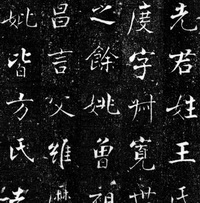 先君姓王氏
度字丗寬世
之餘姚曾祖
昌言父維
妣皆方氏